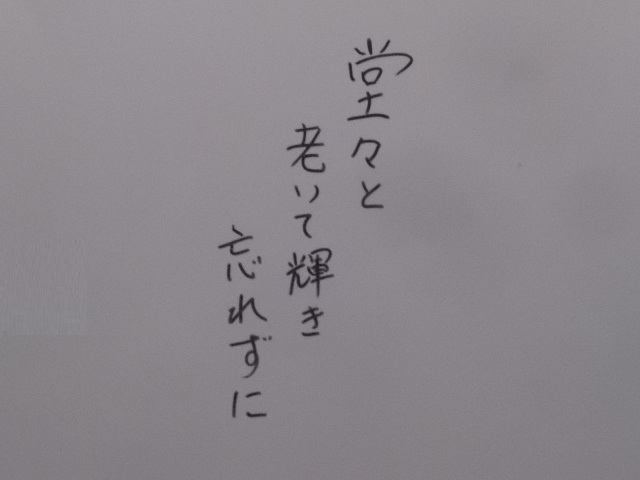 堂々と
老いて輝き
忘れずに